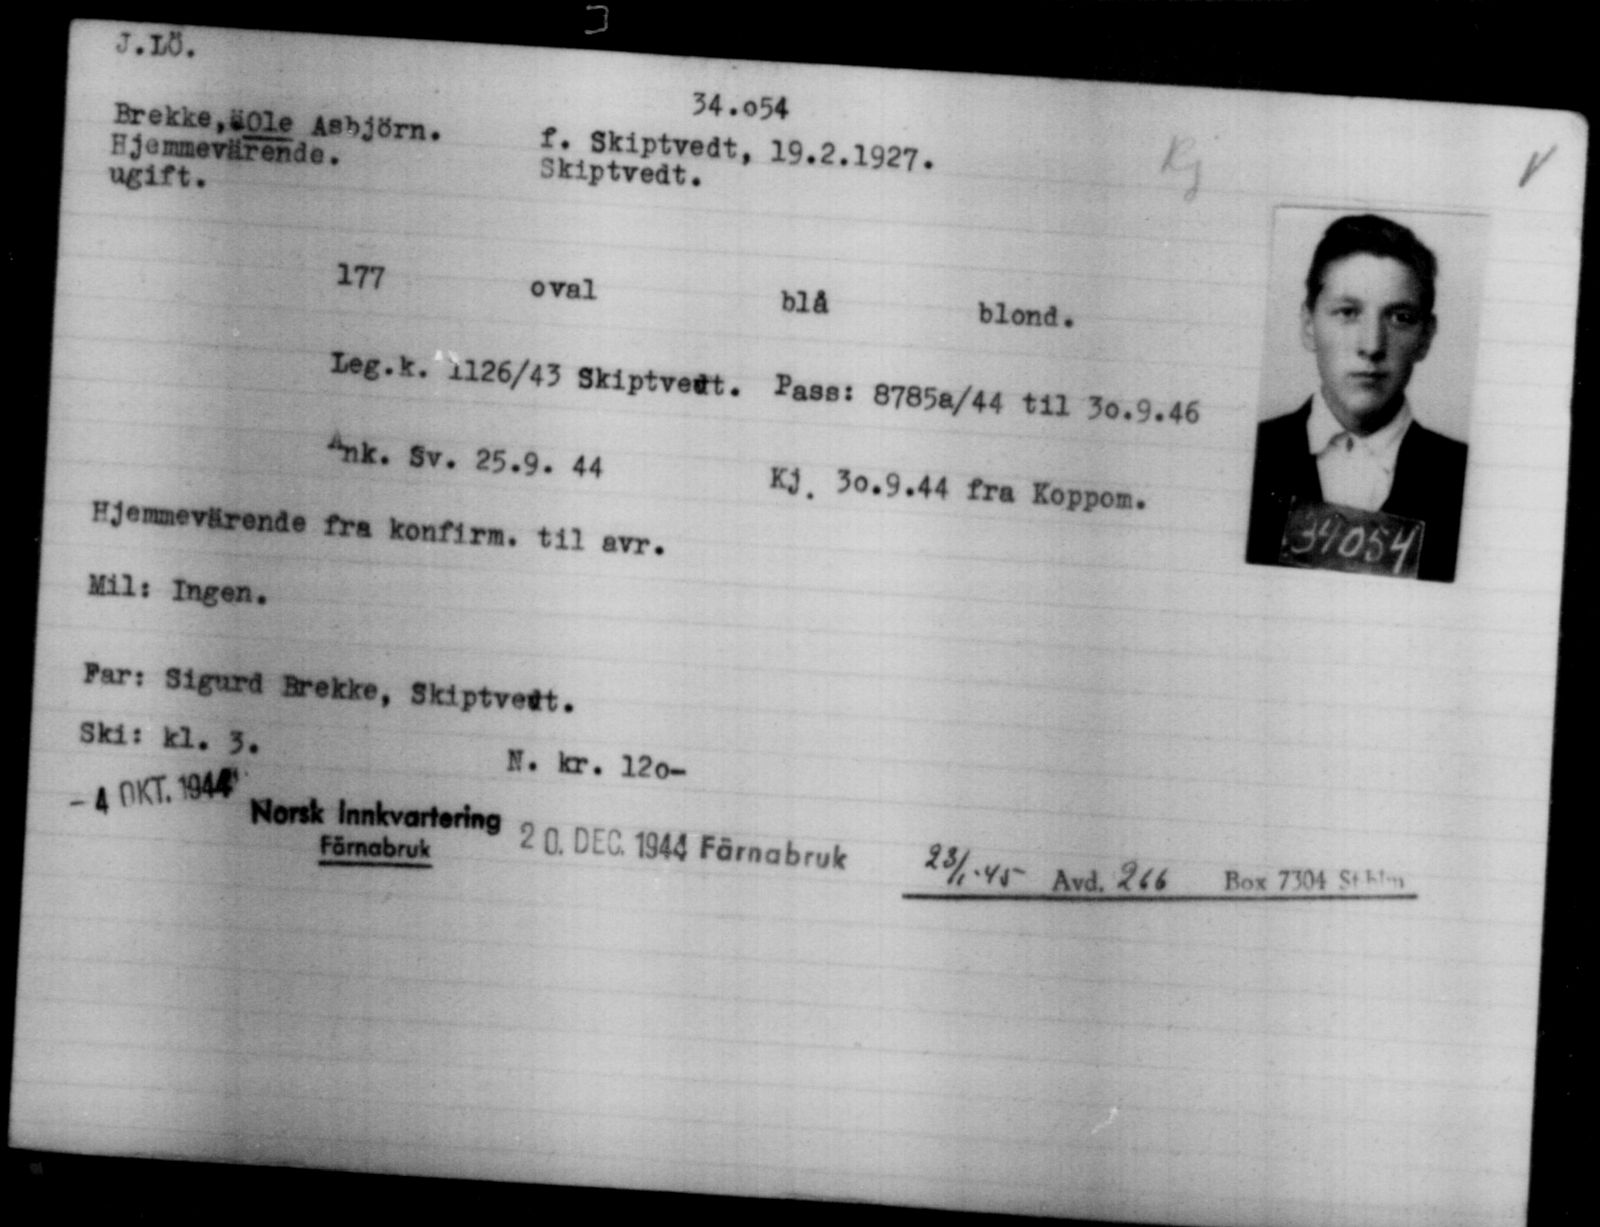 J.LÖ.
34.o54
Brekke, Ole Asbjörn.
f. Skiptvedt, 19.2.1927.
Hjemmevärende.
Skiptvedt.
ugift.
Kj
177 oval blå blond.
Leg.k. 1126/43 Skiptvedt. Pass: 8785a/44 til 3o.9.46
Ank. Sv. 25.9. 44 Kj. 3o.9.44 fra Koppom.
34054
Hjemmevärende fra konfirm. til avr.
Mil: Ingen.
Far: Sigurd Brekke, Skiptvedt.
Ski: kl. 3. N. kr. 12o-
- 4 OKT. 1944
Norsk Innkvartering
Färnabruk
20. DEC. 1944 Färnabruk
23/1.45 Avd. 266 Box 7304 Sthlm